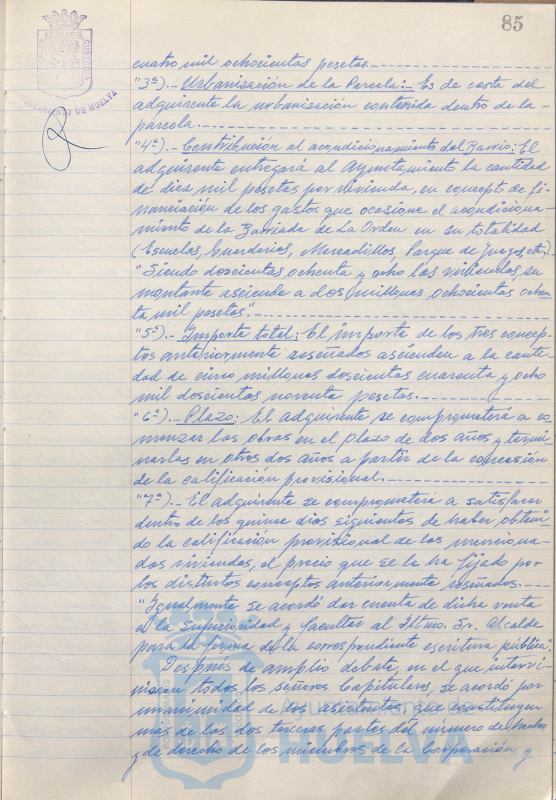 85
AYUNTAMIENTO DE HUELVA
cuatro mil ochocientas pesetas.
"3ª).- Urbanización de la Parcela:- Es de costa del
adquirente la urbanización contenida dentro de la
parcela.
"4ª).- Contribución al acondicionamiento del Barrio: El
adquirente entregará al Ayuntamiento la cantidad
de diez mil pesetas por vivienda, en concepto de fi-
nanciación de los gastos que ocasione el acondiciona-
miento de la Barriada de La Orden en su totalidad
(Escuelas, Guarderías, Mercadillos, Parque de Juegos, etc.)
"Siendo doscientas ochenta y ocho las viviendas, su
montante asciende a dos millones ochocientas ochen-
ta mil pesetas."
"5ª).- Importe total: El importe de los tres concep-
tos anteriormente reseñados ascienden a la canti-
dad de cinco millones doscientas cuarenta y ocho
mil doscientas noventa pesetas.
"6ª).- Plazo: El adquirente se comprometerá a co-
menzar las obras en el plazo de dos años y termi-
narlas en otros dos años a partir de la concesión
de la calificación provisional.
"7ª).- El adquirente se comprometerá a satisfacer
dentro de los quince días siguientes de haber obteni-
do la calificación provisional de las menciona-
das viviendas, el precio que se le ha fijado por
los distintos conceptos anteriormente reseñados.
"Igualmente se acordó dar cuenta de dicha venta
a la Superioridad y facultar al Iltmo. Sr. Alcalde
para la firma de la correspondiente escritura pública.
Después de amplio debate, en el que intervi-
nieron todos los señores Capitulares, se acordó por
unanimidad de los asistentes, que constituyen
más de las dos terceras partes del número de hecho
y de derecho de los miembros de la Corporación y
HUELVA